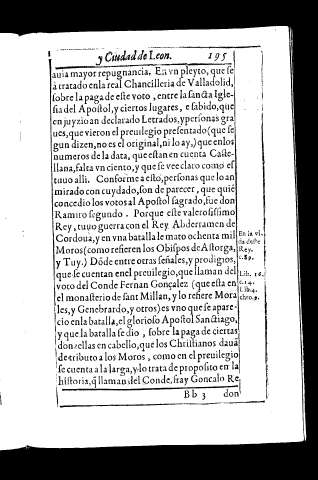 y Ciudad de Leon. 195
auia mayor repugnancia. En vn pleyto, que se
à tratado enla real Chancilleria de Valladolid,
sobre la paga de este voto, entre la sancta Igle-
sia del Apostol, y ciertos lugares, e sabido, que
en juyzio an declarado Letrados, y personas gra
ues, que vieron el preuilegio presentado (que se
gun dizen, no es el original, ni lo ay,) que enlos
numeros de la data, que estan en cuenta Caste-
llana, falta vn ciento, y que se vee claro como es
tuuo alli. Conforme a esto, personas que lo an
mirado con cuydado, son de parecer, que quiē
concedio los votos al Apostol sagrado, fue don
Ramiro segundo. Porque este valerosissimo
Rey, tuuo guerra con el Rey Abderramen de
Cordoua, y en vna batalla le mato ochenta mil
Moros (como refieren los Obispos de Astorga,
y Tuy.) Dōde entre otras señales, y prodigios,
que se cuentan enel preuilegio, que llaman del
voto del Conde Fernan Gonçalez (que esta en
el monasterio de sant Millan, y lo refiere Mora
les, y Genebrardo, y otros) es vno que se apare-
cio en la batalla, el glorioso Apostol Sanctiago,
y que la batalla se dio, sobre la paga de ciertas
donzellas en cabello, que los Christianos dauā
de tributo a los Moros, como en el preuilegio
se cuenta a la larga, y lo trata de proposito en la
historia, q̄ llaman del Conde, fray Gonçalo Re
En la vi
da deste
Rey.
c.89.
Lib. 16.
c.14.
Lib.4.
Bb 3 don